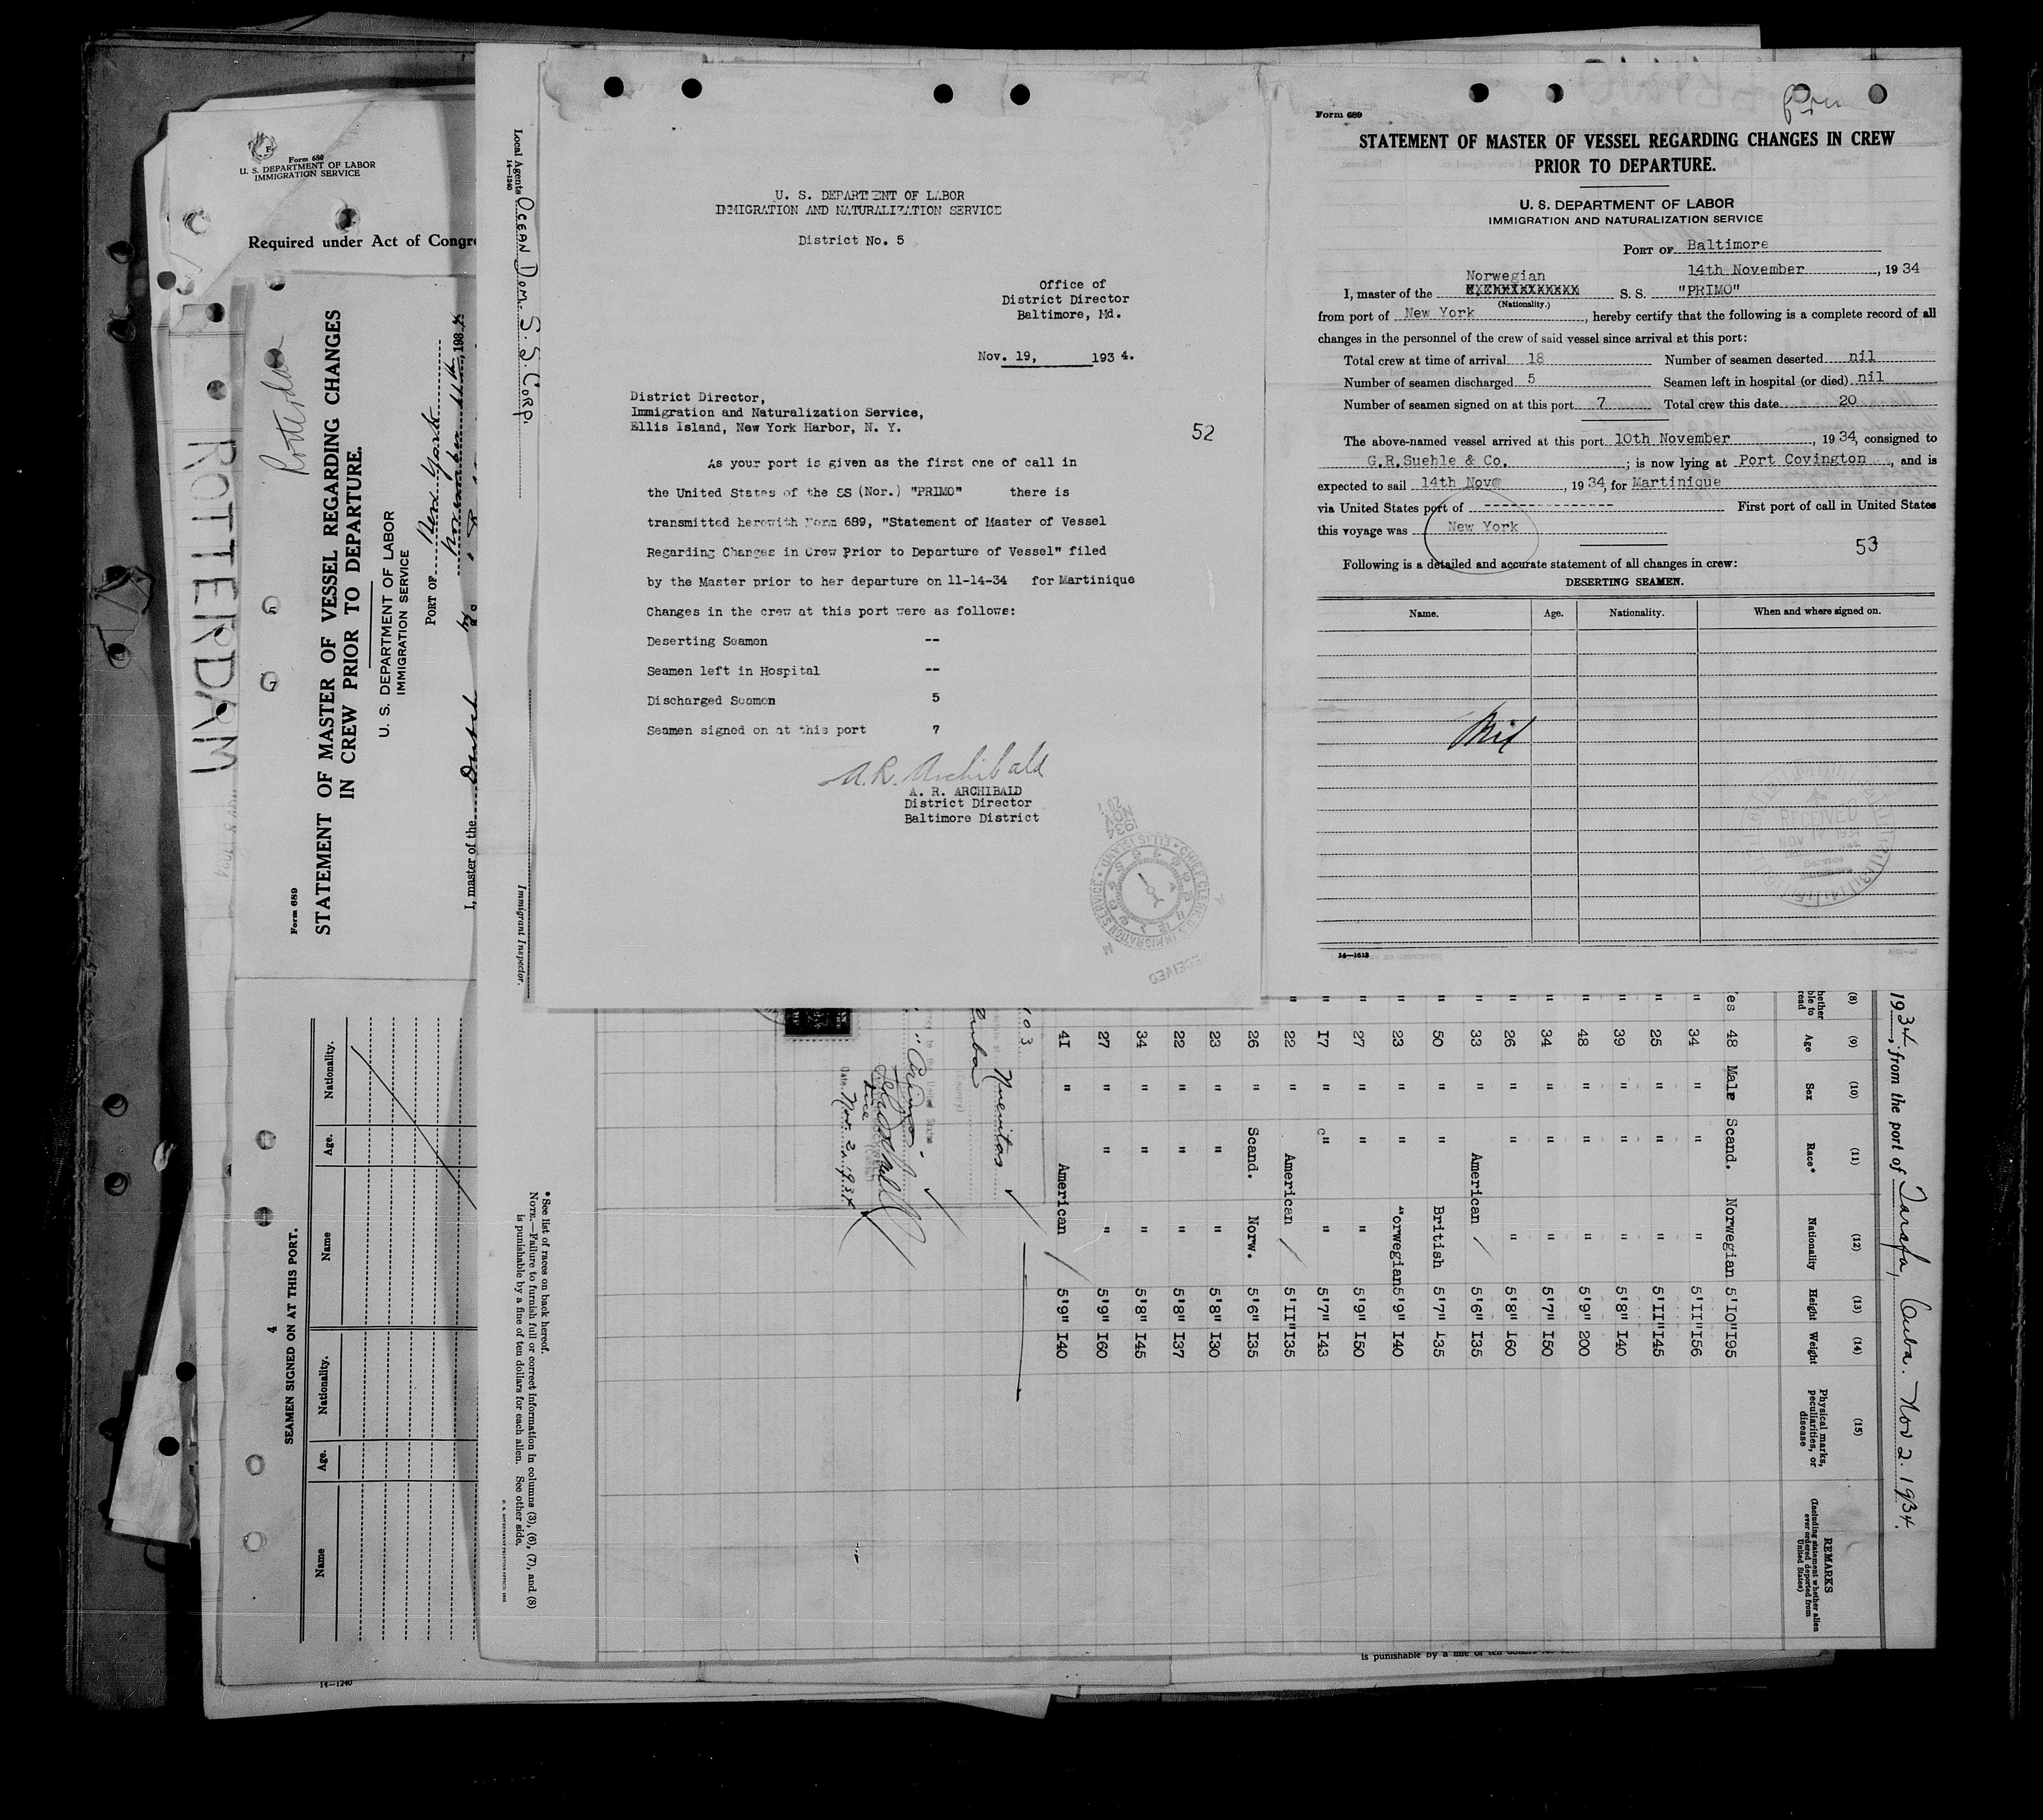 Form 650
U. S. DEPARTMENT OF LABOR
IMMIGRATION SERVICE
Required under Act of Congr
ROTTERDAM
Rotterdam
Form 689
STATEMENT OF MASTER OF VESSEL REGARDING CHANGES
IN CREW PRIOR TO DEPARTURE.
U. S. DEPARTMENT OF LABOR
IMMIGRATION SERVICE
PORT OF New York
November 11th, 193
I, master of the Dutch
4
SEAMEN SIGNED ON AT THIS PORT.
Name Age. Nationality. Name Age. Nationality.
14—1240
Local Agents OCEAN DOM. S. S. CORP.
14—1240
Immigrant Inspector.
U. S. DEPARTMENT OF LABOR
IMMIGRATION AND NATURALIZATION SERVICE
District No. 5
Office of
District Director
Baltimore, Md.
Nov. 19, 1934.
District Director,
Immigration and Naturalization Service,
Ellis Island, New York Harbor, N. Y.
52
As your port is given as the first one of call in
the United States of the SS (Nor.) "PRIMO" there is
transmitted herewith Form 689, "Statement of Master of Vessel
Regarding Changes in Crew Prior to Departure of Vessel" filed
by the Master prior to her departure on 11-14-34 for Martinique
Changes in the crew at this port were as follows:
Deserting Seamen --
Seamen left in Hospital --
Discharged Seamen 5
Seamen signed on at this port 7
A. R. Archibald
A. R. ARCHIBALD
District Director
Baltimore District
RECEIVED
CHIEF CLERK U.S. IMMIGRATION SERVICE • ELLIS ISLAND
1934 NOV 20
Form 689
STATEMENT OF MASTER OF VESSEL REGARDING CHANGES IN CREW
PRIOR TO DEPARTURE.
U. S. DEPARTMENT OF LABOR
IMMIGRATION AND NATURALIZATION SERVICE
PORT OF Baltimore
14th November, 1934
Norwegian
I, master of the S. S. "PRIMO"
(Nationality.)
from port of New York, hereby certify that the following is a complete record of all
changes in the personnel of the crew of said vessel since arrival at this port:
Total crew at time of arrival 18 Number of seamen deserted nil
Number of seamen discharged 5 Seamen left in hospital (or died) nil
Number of seamen signed on at this port 7 Total crew this date 20
The above-named vessel arrived at this port 10th November, 1934, consigned to
G.R.Suehle & Co.; is now lying at Port Covington, and is
expected to sail 14th Nov, 1934, for Martinique
via United States port of --------------- First port of call in United States
this voyage was New York
53
Following is a detailed and accurate statement of all changes in crew:
DESERTING SEAMEN.
Name. Age. Nationality. When and where signed on.
Nil
RECEIVED
Service
14—1613
1934, from the port of Tarafa, Cuba. Nov 2. 1934.
(8) (9) (10) (11) (12) (13) (14) (15)
Age Sex Race* Nationality Height Weight Physical marks, peculiarities, or disease REMARKS
(Including statement whether alien ever ordered deported from United States)
es 48 Male Scand. Norwegian 5'10" 195
" 34 " " " 5'11" 156
" 25 " " " 5'11" 145
" 39 " " " 5'8" 140
" 48 " " " 5'9" 200
" 34 " " " 5'7" 150
" 26 " " " 5'8" 160
" 33 " American 5'6" 135
" 50 " " British 5'7" 135
" 23 " " orwegian 5'9" 140
" 27 " " " 5'9" 150
" 17 " " " 5'7" 143
" 22 " American 5'11" 135
26 " Scand. Norw. 5'6" 135
23 " " " 5'8" 130
22 " " " 5'8" 137
34 " " " 5'8" 145
27 " " " 5'9" 160
41 " American 5'9" 140
103
Nuevitas
Cuba
Date. Nov. 2. 1934
*See list of races on back hereof.
NOTE.—Failure to furnish full or correct information in columns (3), (6), (7), and (8)
is punishable by a fine of ten dollars for each alien. See other side.
is punishable by a fine of ten dollars